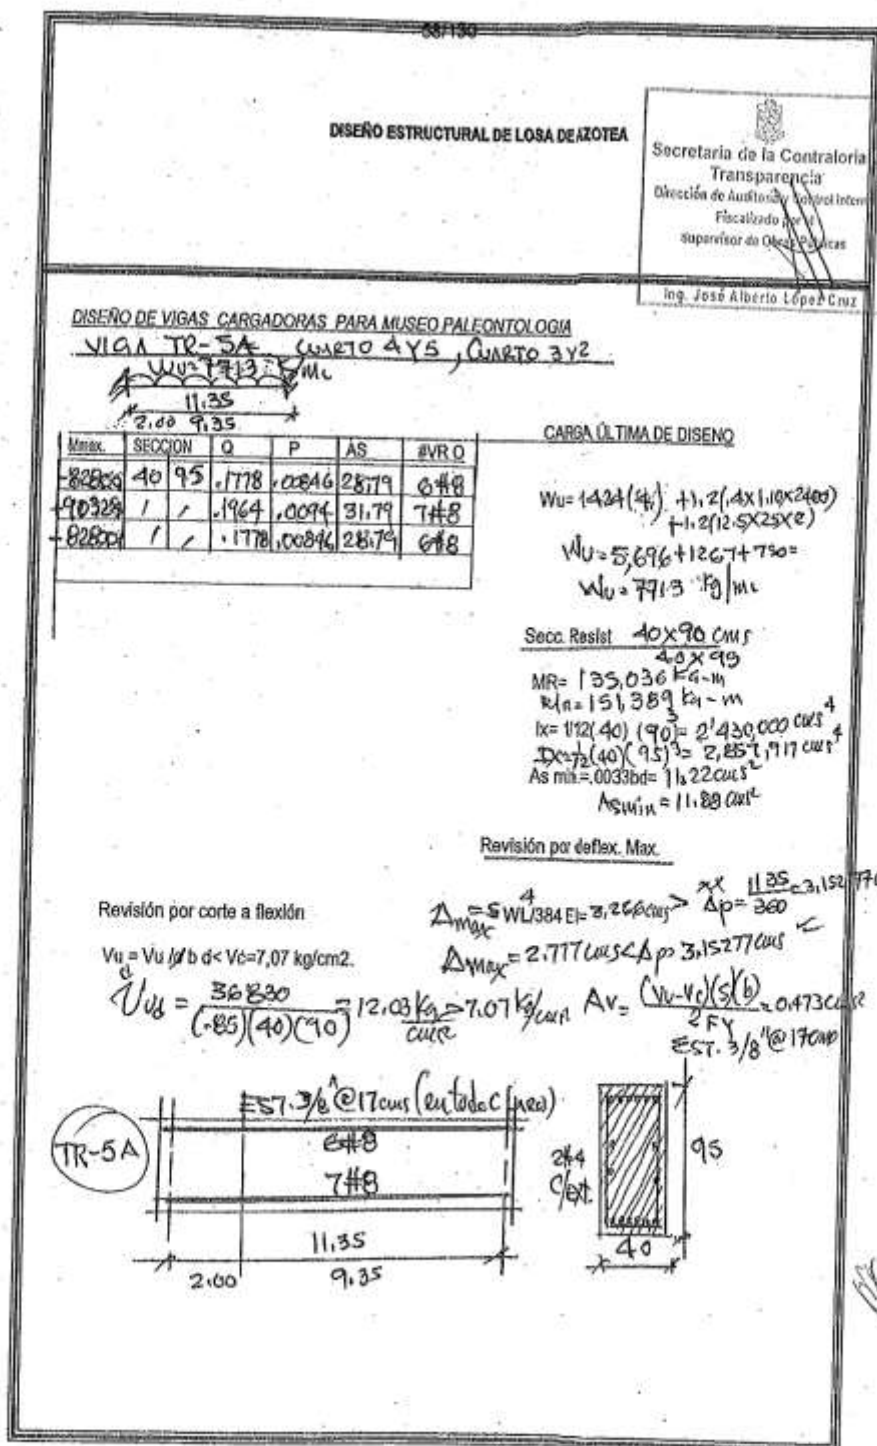 58/130
DISEÑO ESTRUCTURAL DE LOSA DE AZOTEA
Secretaria de la Contraloria
Transparencia
Dirección de Auditoria y Control Intern
Fiscalizado por el
Supervisor de Obras Públicas
Ing. José Alberto López Cruz
DISEÑO DE VIGAS CARGADORAS PARA MUSEO PALEONTOLOGIA
VIGA TR-5A CUARTO 4 Y 5, CUARTO 3 Y 2
Wu=7713
11.35
2.00 9.35
Mmax. SECCION Q P AS #VR O
-82800 40 95 .1778 .00846 28.79 6#8
+90328 .1964 .0094 31.79 7#8
-82800 .1778 .00846 28.79 6#8
CARGA ÚLTIMA DE DISENO
+1.2(.4x1.10x2400)
+1.2(12.5x25x2)
Wu=5,696+1267+750=
Wu=7713 kg/ml
Secc. Resist 40x90 cms
40x95
MR= 135,036 kg-m
151,389 kg-m
Ix= 1/12(40) (90)³= 2'430,000 cms⁴
(40)(95)³= 2,857,917 cms⁴
As min=.0033bd= 11.22cms²
Asmin = 11.89 cms²
Revisión por deflex. Max.
Δmax=5WL⁴/384 EI= 3,266cms > Δp= 1135/360 =3,152
Δmax= 2.777 cms<Δp= 3,15277 cms
Revisión por corte a flexión
Vu = Vu /Ø b d< Vc=7,07 kg/cm2.
= 36830/(.85)(40)(90) =12.03 kg/cms² >7.07 kg/cms²
Av= (Vu-Vc)(s)(b)/2FY = 0.473cms²
EST. 3/8"@17cms
EST. 3/8"@17cms (en todo
TR-5A
6#8
7#8
11.35
2.00 9.35
2#4
C/ext.
95
40